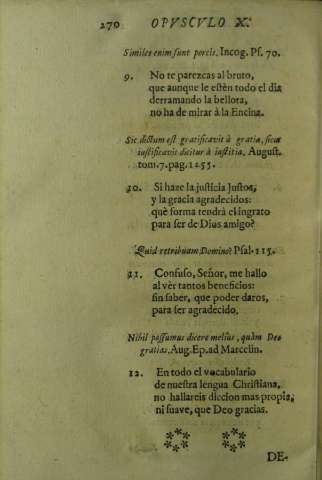 270 OPVSCVLO X.
Similes enim sunt porcis. Incog. Ps. 70.
9. No te parezcas al bruto,
que aunque le estèn todo el dia
derramando la bellota,
no ha de mirar à la Encina.
Sic dictum est gratificavit à gratia, sicut
iustificavit dicitur à iustitia, August.
tom. 7. pag. 1255.
10. Si haze la justicia Justos,
y la gracia agradecidos:
què forma tendrà el ingrato
para ser de Dios amigo?
Quid retribuam Domino? Psal. 115.
11. Confuso, Señor, me hallo
al vèr tantos beneficios:
sin saber, que poder daros,
para ser agradecido.
Nihil possumus dicere melius, quàm Deo
gratias. Aug. Ep. ad Marcelin.
12. En todo el vocabulario
de nuestra lengua Christiana,
no hallareis diccion mas propia,
ni suave, que Deo gracias.
DE-